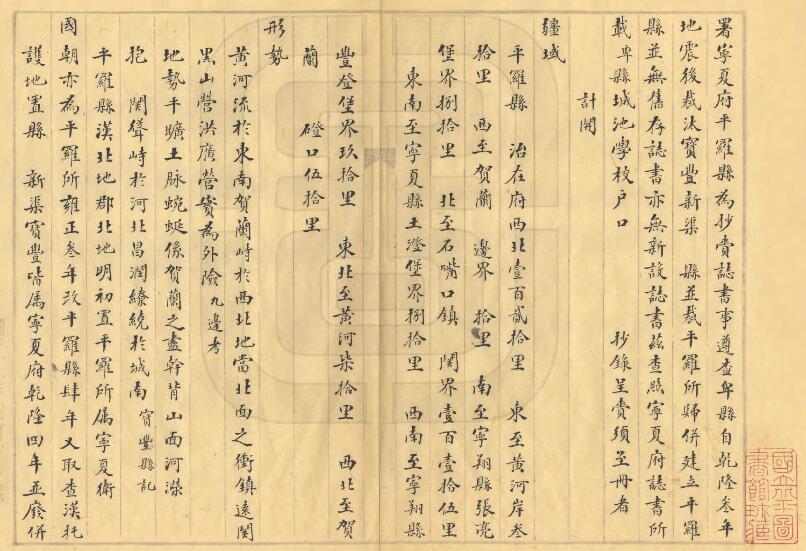 署寧夏府平羅縣為抄賫誌書事遵查卑縣自乾隆叁年
地震後裁汰寶豐新渠　縣並裁平羅所歸併建立平羅
縣並無舊存誌書亦無新設誌書茲查照寧夏府誌書所
載卑縣城池學校户口　抄錄呈賫須至冊者
計開
疆域
平羅縣　治在府西北壹百貳拾里　東至黃河岸叁
拾里　西至賀蘭　邊界　拾里　南至寧翔縣張亮
堡界捌拾里　北至石嘴口鎮　関界壹百壹拾伍里
東南至寧夏縣土澄堡界捌拾里　西南至寧翔縣
豐登堡界玖拾里　東北至黃河柒拾里　西北至賀
蘭　磴口伍拾里
形勢
黃河流於東南賀蘭峙於西北地當北面之衝鎮遠関
黑山營洪廣營實為外險九邊考
地勢平曠土脉蜿蜒係賀蘭之盡幹背山面河濼
抱　関聳峙於河北昌潤繚繞於城南寶豐縣記
平羅縣漢北地郡北地明初置平羅所属寧夏衛
國朝亦為平羅所雍正叁年改平羅縣肆年又取查漢托
護地置縣　新渠寶豐皆属寧夏府乾隆四年並廢併
國立北平圖
書館珍藏